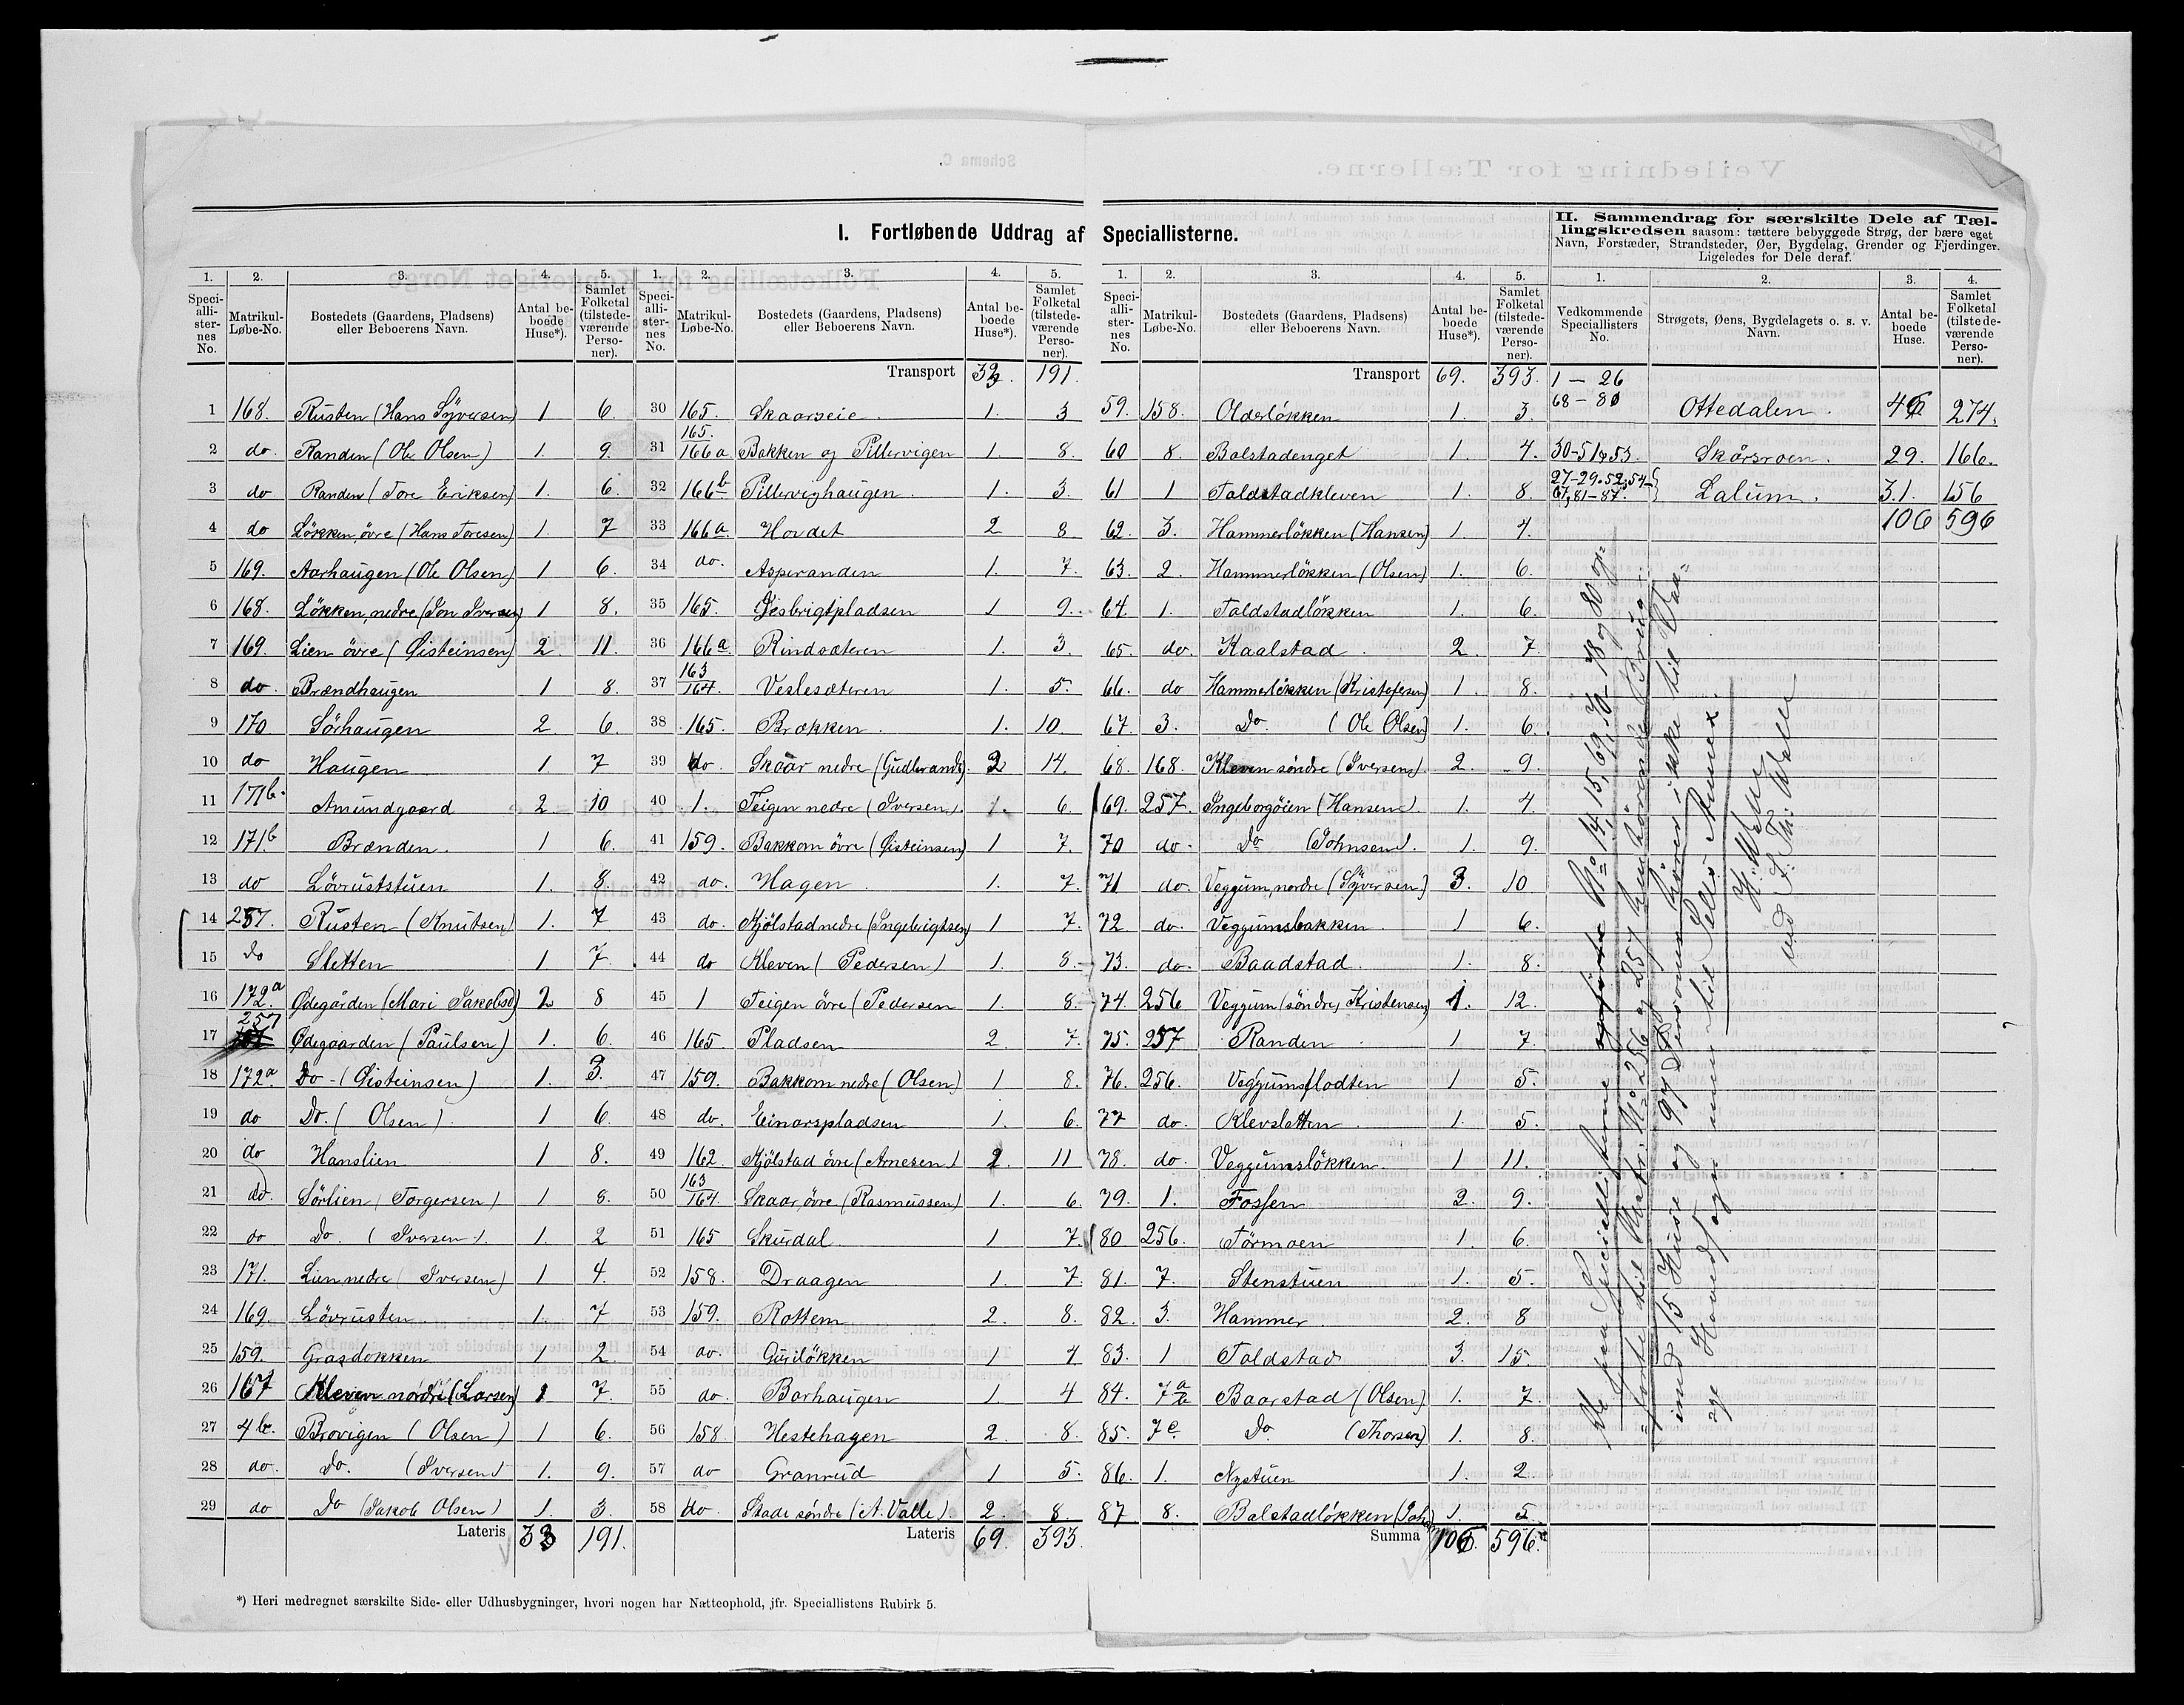 I. Fortløbende Uddrag af Speciallisterne.
1. 2. 3. 4. 5.
Speci-alli-ster-nes No. Matrikul-Løbe-No. Bostedets (Gaardens, Pladsens) eller Beboerens Navn. Antal be-boede Huse*). Samlet Folketal (tilstede-værende Perso-ner).
1 168. Rusten (Hans Syversen) 1 6.
2 do. Randen (Ole Olsen) 1. 9.
3 do Randen (Tore Eriksen) 1. 6.
4 do Løkken, övre (Hans Toresen) 1. 7
5 169. Aarhaugen (Ole Olsen) 1 6.
6 168. Løkken, nedre (Jon Iversen) 1 8.
7 169. Lien övre (Øisteinsen) 2. 11.
8 do. Brændhaugen 1 8.
9 170 Sörhaugen 2 6.
10 do Haugen 1. 7
11 171b. Amundgaard 2. 10
12 171b Brænden. 1 6.
13 do Lövruststuen 1. 8.
14 257. Rusten (Knutsen) 1. 7
15 do Sletten 1 7.
16 172.a Ødegården (Mari Jakobsd) 2 8
17 257 Ødegaarden (Paulsen) 1. 6.
18 172a Do - (Øisteinsen) 1. 3.
19 do Do. (Olsen) 1 6.
20 do Hanslien 1 8.
21 do. Sörlien (Torgersen) 1 8.
22 do Do. (Iversen). 1. 2
23 171. Lien nedre (Iversen) 1 4.
24 169. Lövrusten. 1. 7
25 159. Grasdokken 1 2.
26 167 Kleven nördre (Larsen) 1 7.
27 4b. Brovigen (Olsen) 1 6.
28 do. Do. (Iversen) 1. 9.
29 do Do (Jakob Olsen) 1. 3.
Lateris 33 191.
1. 2. 3. 4. 5.
Speci-alli-ster-nes No. Matrikul-Løbe-No. Bostedets (Gaardens, Pladsens) eller Beboerens Navn. Antal be-boede Huse*). Samlet Folketal (tilstede-værende Perso-ner).
Transport 33. 191.
30 165. Skaarseie. 1. 3
31 165. 166a Bakken og Pillervigen 1. 8.
32 166b Pillervighaugen 1. 3.
33 166a. Hovdet 2 8
34 do. Asperanden 1. 7.
35 165. Gisbrigtpladsen 1 9.
36 166a. Rindsæteren 1. 3.
37 163 164. Veslesæteren 1. 5.
38 165. Brækken. 1. 10.
39 do. Skaar nedre (Gudbrands) 2 14.
40 1. Teigen nedre (Iversen). 1. 6.
41 159. Bakkom övre (Øisteinsen) 1 7.
42 do. Hagen. 1. 7.
43 do. Kjölstad nedre (Ingebrigtsen) 1 7.
44 do Kleven (Pedersen) 1. 8.
45 1 Teigen övre (Pedersen 1. 8.
46 165 Pladsen 2. 7.
47 159. Bakkom nedre (Olsen) 1 8.
48 do. Einarspladsen 1. 6.
49 162. Kjölstad övre (Arnesen) 2. 11
50 163 164. Skaar, övre (Rasmussen) 1. 6.
51 165 Skurdal. 1 7.
52 158. Draagen 1. 7.
53 159. Rottem 2. 8.
54 do. Guriløkken 1 4
55 do. Barhaugen 1. 4
56 158 Hestehagen 2. 8.
57 do Granrud 1 5.
58 do. Stade söndre (A. Valle) 2. 8.
Lateris 69. 393.
1. 2. 3. 4. 5.
Speci-alli-ster-nes No. Matrikul-Løbe-No. Bostedets (Gaardens, Pladsens) eller Beboerens Navn. Antal be-boede Huse*). Samlet Folketal (tilstede-værende Perso-ner).
Transport 69. 393.
59. 158. Olderløkken 1. 3.
60 8. Balstadenget 1. 4.
61 1 Taldstadkleven 1. 8.
62. 3. Hammerløkken (Hansen) 1 4.
63. 2. Hammerløkken (Olsen) 1. 6.
64. 1. Taldstadløkken 1. 6.
65. do. Kaalstad. 2. 7.
66. do Hammerløkken (Kristofersen) 1. 8.
67. 3. Do. (Ole Olsen) 1. 6.
68. 168. Kleven söndre (Iversen). 2. 9.
69. 257. Ingeborgöien (Hansen). 1. 4.
70 do. Do (Johnsen). 1. 9.
71 do. Veggum, nordre (Syversen) 3. 10
72 do. Veggumsbakken 1 6.
73. do. Baadstad. 1. 8.
74. 256 Veggum (söndre, Kristensen) 1. 12.
75. 257 Randen 1 7.
76. 256. Veggumsflodten 1 5.
77 do. Klevsletten 1. 5.
78. do. Veggumsløkken. 1 11.
79. 1. Fossen 2. 9.
80 256. Törmoen 1. 6.
81. 7. Stenstuen 1. 5.
82. 3. Hammer 2. 8
83. 1 Taldstad 3. 15.
84. 7a b Baarstad (Olsen) 1. 7.
85. 7c. Do. (Thorsen) 1. 8.
86. 1. Nystuen 1. 2
87 8. Balstadløkken (Joh) 1. 5.
Summa 106. 596.
II. Sammendrag for særskilte Dele af Tæl-
lingskredsen saasom: tættere bebyggede Strøg, der bære eget
Navn, Forstæder, Strandsteder, Øer, Bygdelag, Grender og Fjerdinger.
Ligeledes for Dele deraf.
1. 2. 3. 4.
Vedkommende Speciallisters No. Strøgets, Øens, Bygdelagets o. s. v. Navn. Antal be-boede Huse. Samlet Folketal (tilstede-værende Perso-ner).
1 - 26
68 - 80 Ottedalen. 46 274.
30-51 & 53. Skårsroen. 29. 166.
27-29. 52, 54-
67, 81-87. Lalum. 31. 156
106 596
De paa Speciallisterne opførte No 14, 15, 69, 70-78 og 80 op-
førte til Matr. No 256 og 257 henhørende Brug
med 15 Huse og 97 Personer hører ikke til Vaa-
ge Hovedsogn men til Sells Annex.
H. Valle
ved J. Th. Valle
*) Heri medregnet særskilte Side- eller Udhusbygninger, hvori nogen har Natteophold, jfr. Speciallistens Rubirk 5.
Schema C.
Veiledning for Tællerne.
Folketælling for Kongeriget Norge